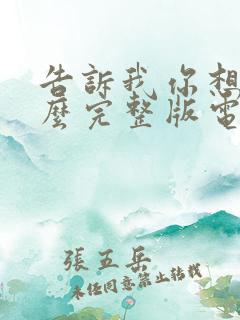 告訴我你想
麼完整版電
張五岳
未任同意禁止转载